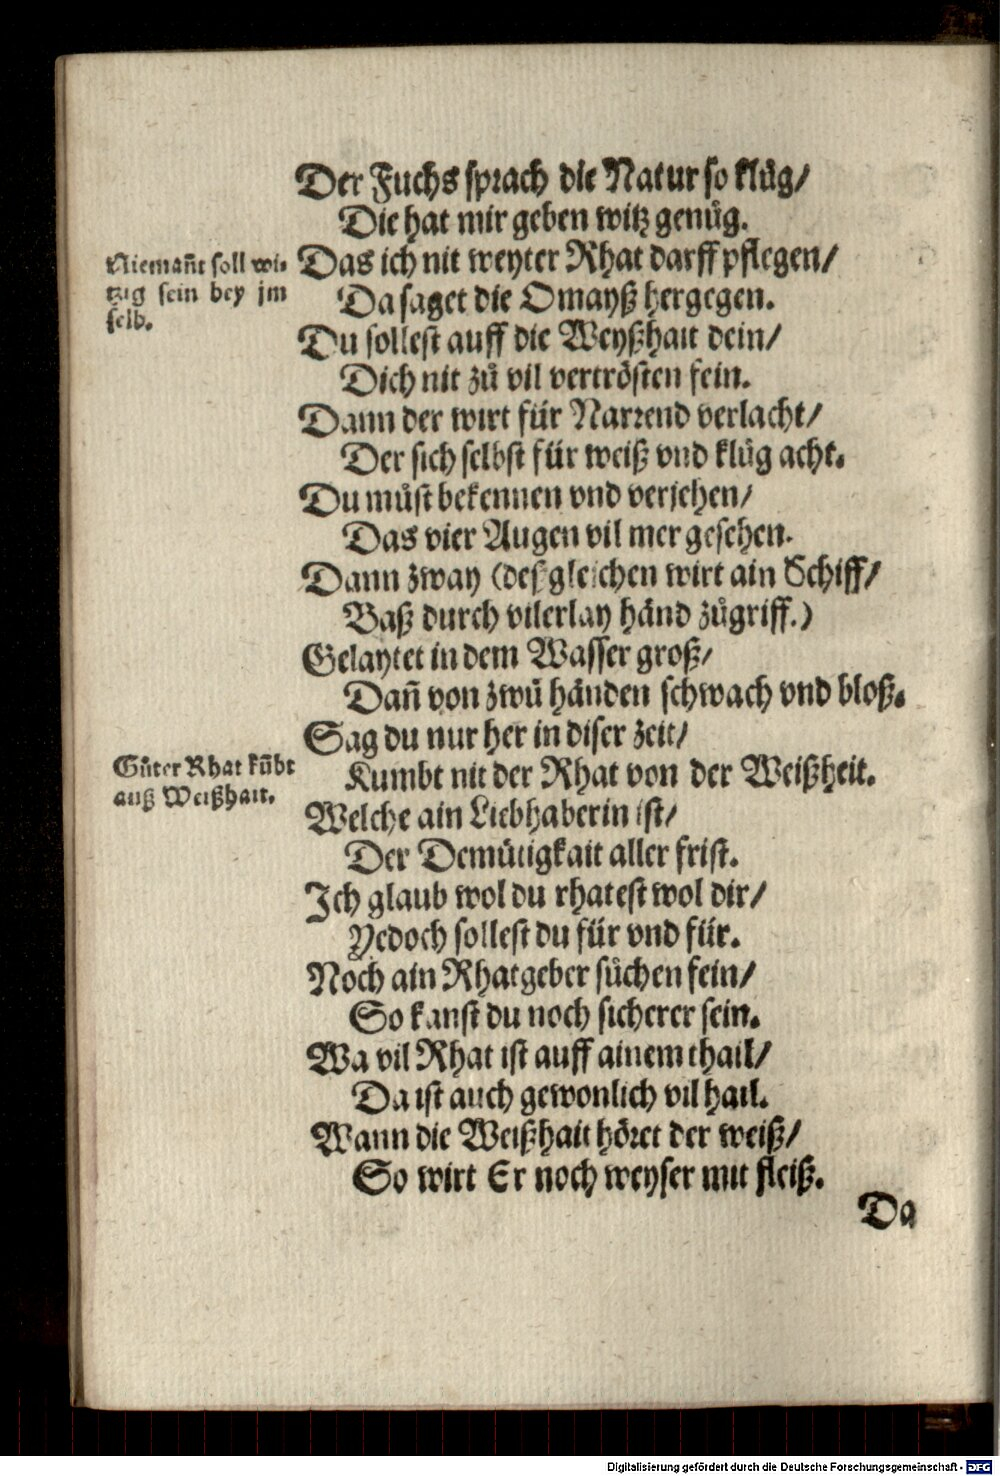 Der Fuchs sprach die Natur so klůg/
Die hat mir geben witz genůg.
Das ich nit weyter Rhat darff pflegen/
Da saget die Omayß hergegen.
Du sollest auff die Weyßhait dein/
Dich nit zů vil vertrösten fein.
Dann der wirt für Narrend verlacht/
Der sich selbst für weiß vnd klůg acht.
Du můst bekennen vnd verjehen/
Das vier Augen vil mer gesehen.
Dann zway (desgleichen wirt ain Schiff/
Baß durch vilerlay händ zůgriff.)
Gelaytet in dem Wasser groß/
Dañ von zwů händen schwach vnd bloß.
Sag du nur her in diser zeit/
Kumbt nit der Rhat von der Weißheit.
Welche ain Liebhaberin ist/
Der Demůtigkait aller frist.
Ich glaub wol du rhatest wol dir/
Yedoch sollest du für vnd für.
Noch ain Rhatgeber sůchen fein/
So kanst du noch sicherer sein.
Wa vil Rhat ist auff ainem thail/
Da ist auch gewonlich vil hail.
Wann die Weißhait höret der weiß/
So wirt Er noch weyser mit fleiß.
Da
Niemañt soll wi-
tzig sein bey jm
selb.
Gůter Rhat kũbt
auß Weißhait.
Digitalisierung gefördert durch die Deutsche Forschungsgemeinschaft - DFG